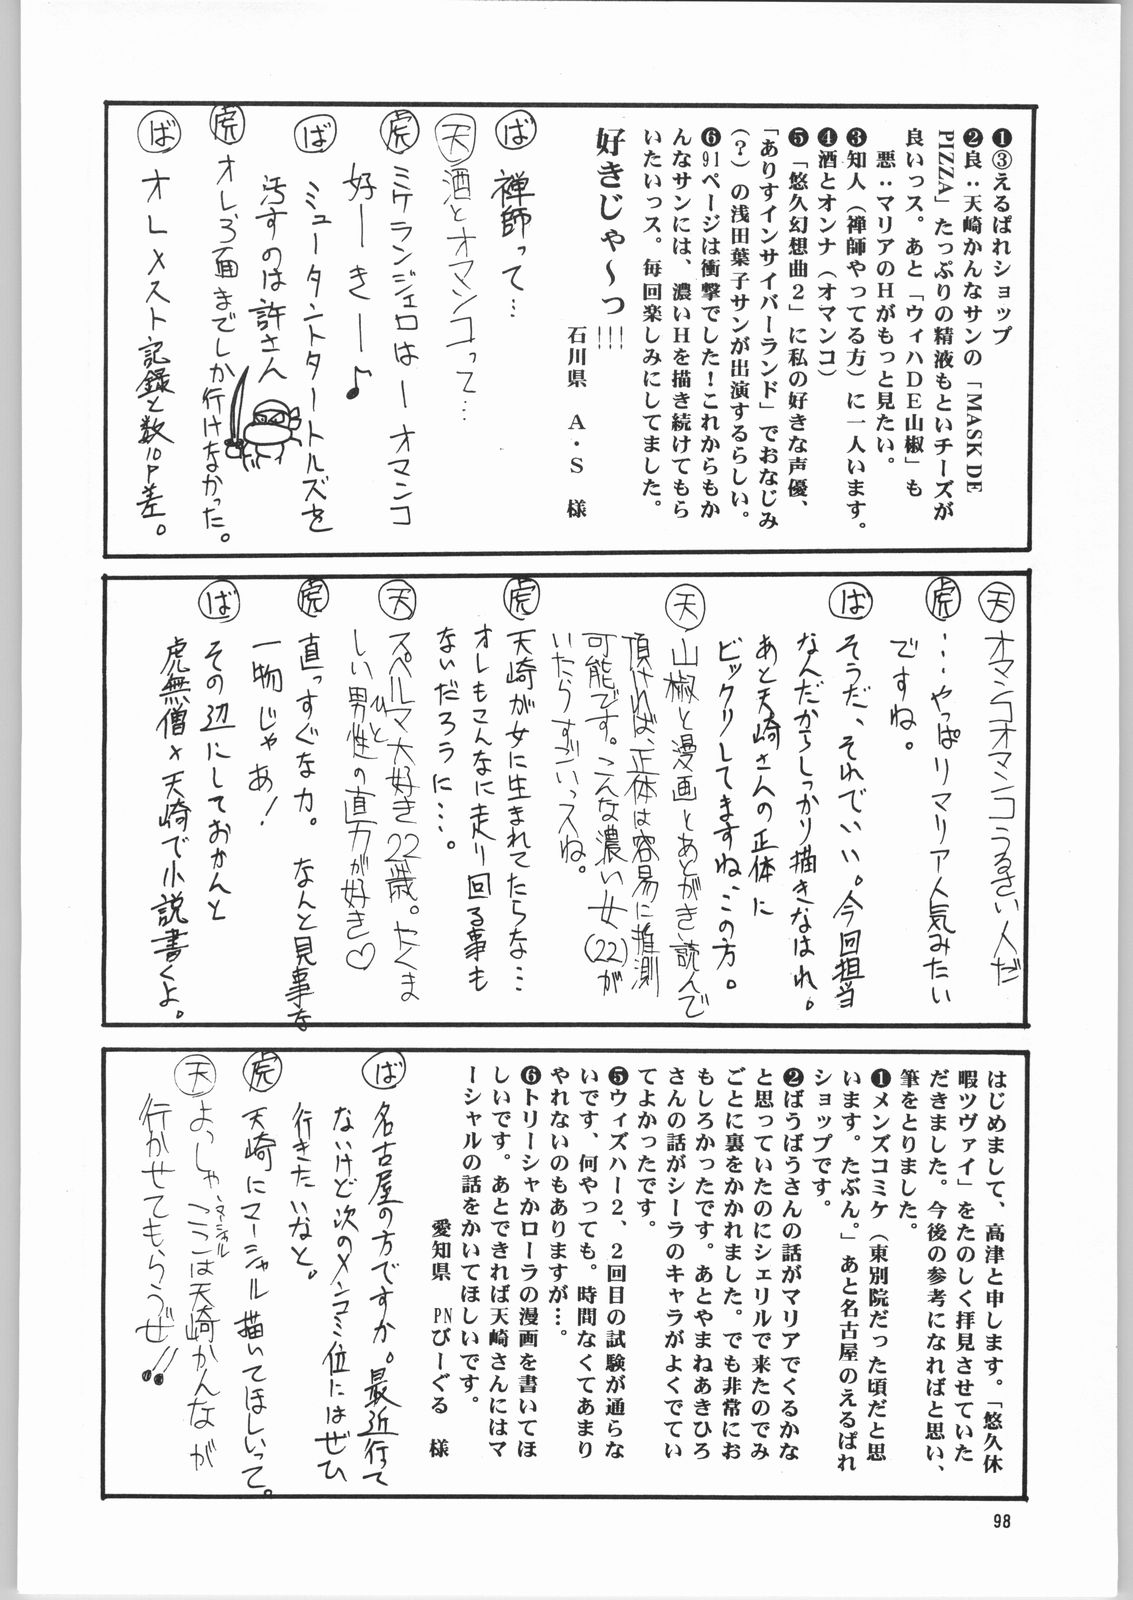 ❶③えるぱれショップ
❷良:天崎かんなサンの「MASK DE
PIZZA」たっぷりの精液もといチーズが
良いっス。あと「ウィハDE山椒」も
悪:マリアのHがもっと見たい。
❸知人(禅師やってる方)に一人います。
❹酒とオンナ(オマンコ)
❺「悠久幻想曲2」に私の好きな声優、
「ありすインサイバーランド」でおなじみ
(?)の浅田葉子サンが出演するらしい。
❻91ページは衝撃でした!これからもか
んなサンには、濃いHを描き続けてもら
いたいっス。毎回楽しみにしてました。
好きじゃ〜っ!!!
石川県 A・S 様
ば 禅師って…
天 酒とオマンコって…
虎 ミケランジェロはーオマンコ
好ーきー♪
ば ミュータントタートルズを
汚すのは許さん
虎 オレら面までしか行けなかった。
ば オレ×スト記録と数10P差。
天 オマンコオマンコうるさい人だ
虎 …やっぱリマリア人気みたい
ですね。
ば そうだ、それでいい。今回担当
なんだからしっかり描きなはれ。
あと天崎さんの正体に
ビックリしてますね、この方。
天 山椒と漫画とあとがき読んで
頂ければ、正体は容易に推測
可能です。こんな濃い女(22)が
いたらすごいっスね。
虎 天崎が女に生まれてたらな…
オレもこんなに走り回る事も
ないだろうに…。
天 スペルマ大好き22歳。たくま
しい男性の直刀が好き♡
ひと
虎 直っすぐな刀。なんと見事な
一物じゃあ!
ば その辺にしておかんと
虎無僧×天崎で小説書くよ。
はじめまして、高津と申します。「悠久休
暇ツヴァイ」をたのしく拝見させていた
だきました。今後の参考になればと思い、
筆をとりました。
❶メンズコミケ(東別院だった頃だと思
います。たぶん。」あと名古屋のえるぱれ
ショップです。
❷ばうばうさんの話がマリアでくるかな
と思っていたのにシェリルで来たのでみ
ごとに裏をかかれました。でも非常にお
もしろかったです。あとやまねあきひろ
さんの話がシーラのキャラがよくでてい
てよかったです。
❺ウィズハー2、2回目の試験が通らな
いです、何やっても。時間なくてあまり
やれないのもありますが…。
❻トリーシャかローラの漫画を書いてほ
しいです。あとできれば天崎さんにはマ
ーシャルの話をかいてほしいです。
愛知県 PNびーぐる 様
ば 名古屋の方ですか。最近行って
ないけど次のメンコミ位にはぜひ
行きたいなと。
虎 天崎にマーシャル描いてほしいって。
天 よっしゃ、ここは天崎かんなが
マーシャル
行かせてもらうぜ!!
98